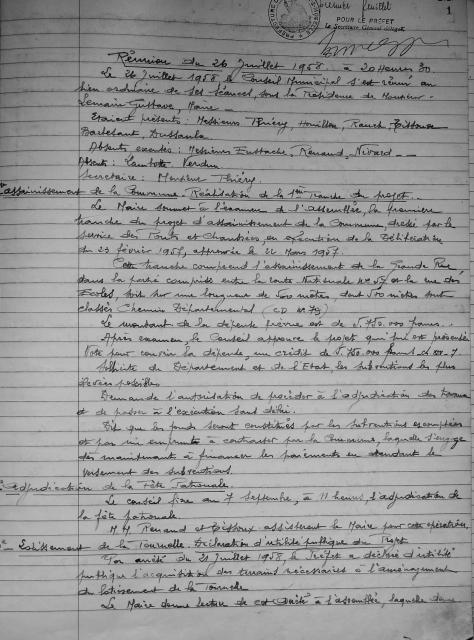 premier feuillet
1
POUR LE PREFET
Le Secrétaire Général délégué
Réunion du 26 Juillet 1958 à 20 Heures 30
Le 26 Juillet 1958 le Conseil Municipal s'est réuni au
lieu ordinaire de ses séances, sous la Présidence de Monsieur
Lemaire Gustave, Maire
Etaient présents : Messieurs Thiéry, Houillon, Rauch, Bissoux
Dussaula
Absents excusés : Messieurs Eustache, Renaud, Nivard
Absents : Lambotte Verdun
Secrétaire : Monsieur Thiéry
assainissement de la Commune. Réalisation de la 1ère Tranche du projet
Le Maire soumet à l'examen de l'Assemblée, la première
tranche du projet d'assainissement de la Commune, dressé par le
service des Ponts et Chaussées, en exécution de la délibération
du 23 février 1957, approuvée le 22 Mars 1957.
Cette tranche comprend l'assainissement de la Grande Rue
dans la partie comprise entre la route Nationale N° 57 et la rue des
Ecoles, soit sur une longueur de 500 mètres, dont 500 mètres sont
classés Chemin Départemental (CD N° 79)
Le montant de la dépense prévue est de 5.750.000 francs.
Après examen, le Conseil approuve le projet qui lui est présenté
Vote pour couvrir la dépense, un crédit de 5.750.000 francs
Sollicite du Département et de l'Etat, les subventions les plus
élevées possibles
Demande l'autorisation de procéder à l'adjudication des travaux
et de passer à l'exécution sans délai.
Dit que les fonds seront constitués par les subventions escomptées
et par un emprunt à contracter par la Commune, laquelle s'engage
dès maintenant à financer les paiements en attendant le
versement des subventions.
adjudication de la Fête Patronale.
Le conseil fixe au 7 septembre, à 11 heures, l'adjudication de
la fête patronale.
M.M. Renaud et Bissoux assisteront le Maire pour cette opération.
Lotissement de la Tournelle. Déclaration d'utilité publique du Projet
Par arrêté du 21 Juillet 1958, le Préfet a déclaré d'utilité
publique l'acquisition des terrains nécessaires à l'aménagement
du lotissement de la Tournelle
Le Maire donne lecture de cet arrêté à l'assemblée, laquelle dans